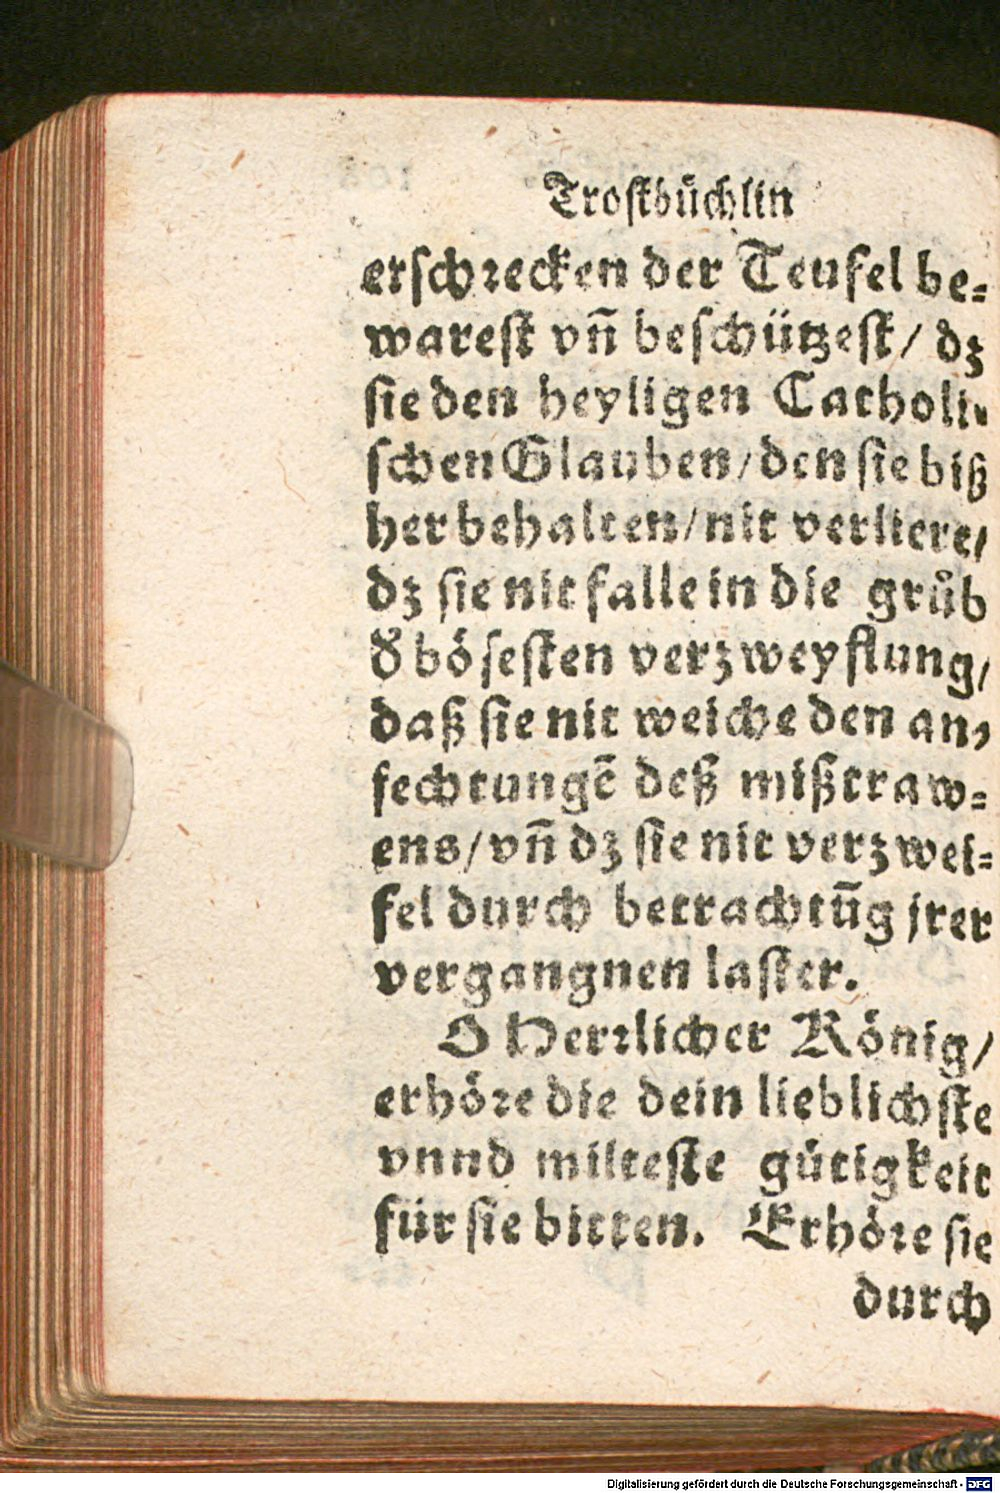 Trostbüchlin
erschrecken der Teufel be⸗
warest vñ beschützest/ dz
sie den heyligen Catholi⸗
schen Glauben/ den sie biß
her behalten/ nit verliere/
dz sie nit falle in die grůb
d' bösesten verzweyflung/
daß sie nit weiche den an⸗
fechtungẽ deß mißtraw⸗
ens/ vñ dz sie nit verzwei⸗
fel durch betrachtũg jrer
vergangnen laster.
O Herrlicher König/
erhöre die dein lieblichste
vnnd milteste gütigkeit
für sie bitten. Erhöre sie
durch
Digitalisierung gefördert durch die Deutsche Forschungsgemeinschaft - DFG